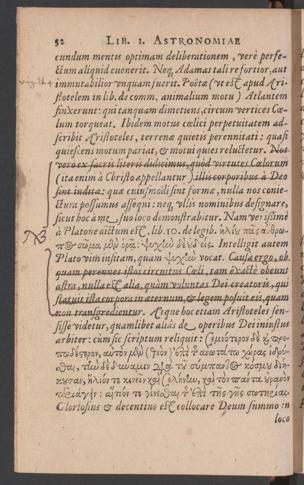 52 LIB. I. ASTRONOMIAE
cundum mentis optimam deliberationem, verè perfe-
ctum aliquid euenerit. Neq; Adamas tali re fortior, aut
immutabilior vnquam fuerit. Poëtæ (vt est apud Ari-
stotelem in lib. de comm. animalium motu) Atlantem
finxerunt: qui tanquam dimetiens, circum vertices Cœ-
lum torqueat. Ibidem motus cœlici perpetuitatem ad-
scribit Aristoteles, terrenæ quietis perennitati: quasi
quiescens motum pariat, & motui quies reluctetur. Nos
vero ex sacris literis didicimus, quòd virtutes Cœlorum
(ita enim à Christo appellantur) illis corporibus à Deo
sint inditæ: quæ cuiusmodi sint formæ, nulla nos conie-
ctura possumus assequi: neq; vllis nominibus designare,
sicut hoc à me, suo loco demonstrabitur. Nam verissimè
à Platone dictum est, lib. 10. de legib.
Intelligit autem
Plato vim insitam, quam ψυχὴν vocat. Causa ergo, ob
quam perennes istos circuitus Cœli, tam exactè obeunt
astra, nulla est alia, quàm voluntas Dei creatoris, qui
statuit ista corpora in æternum, & legem posuit eis, quam
non transgredientur. Atque hoc etiam Aristoteles sen-
sisse videtur, quamlibet aliàs de operibus Dei iniustus
arbiter: cùm sic scriptum reliquit:
Gloriosius & decentius est collocare Deum summo in
loco